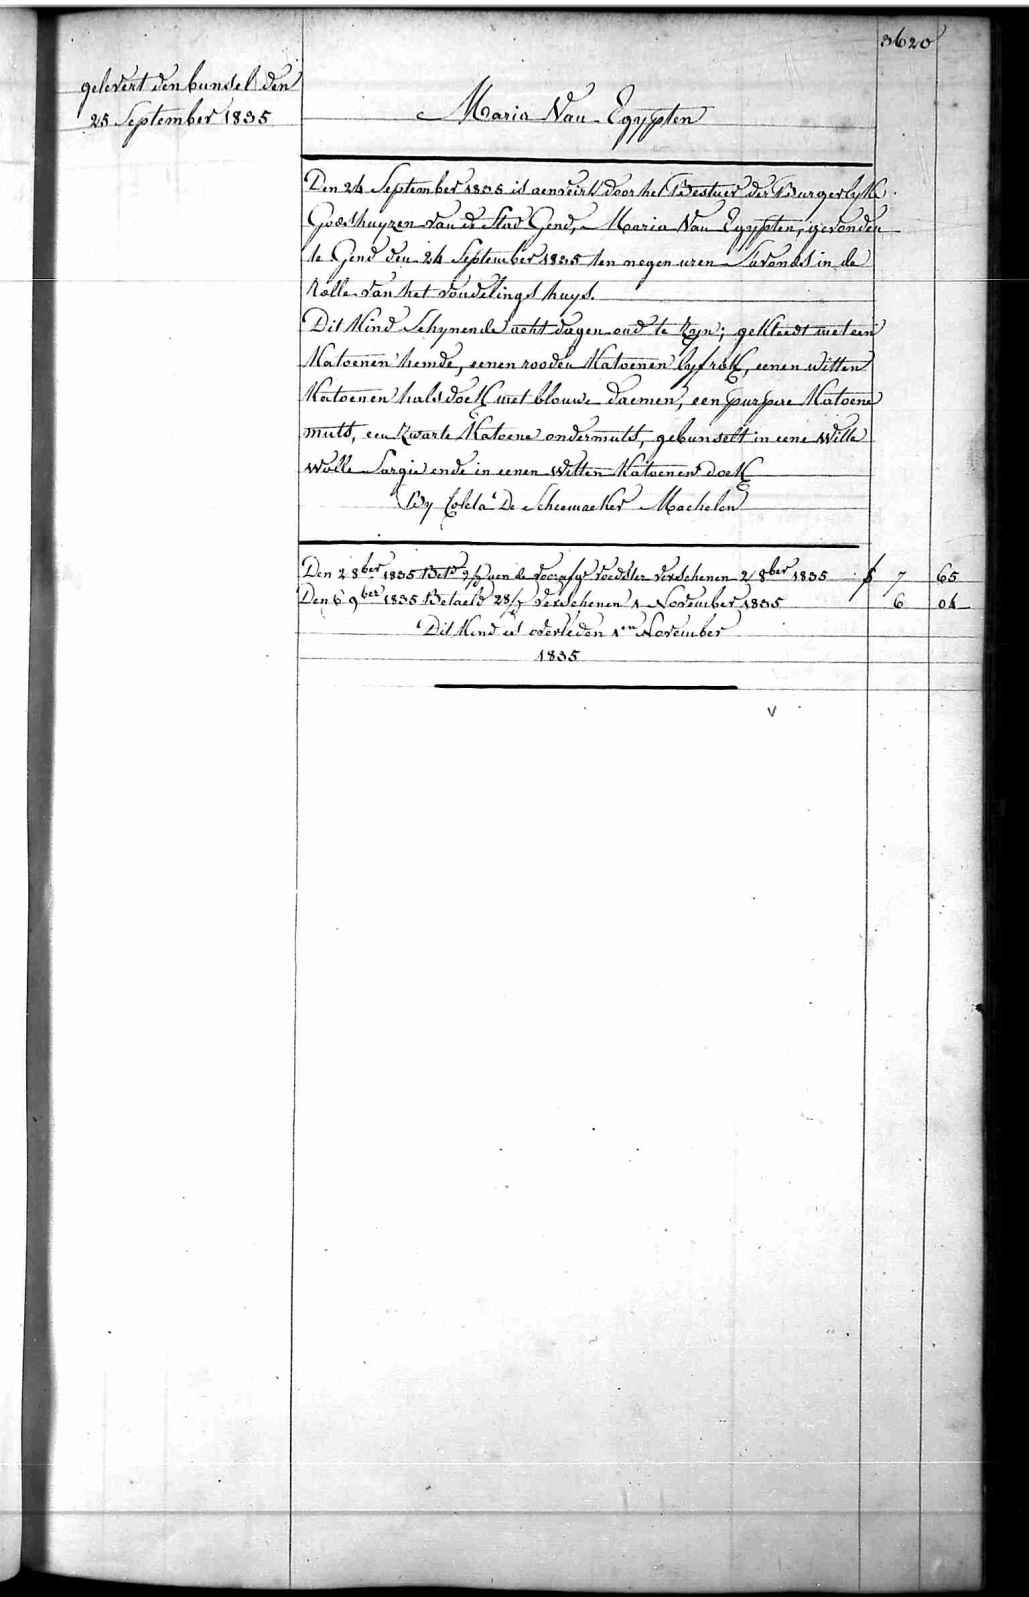 3620
gelevert den bunsel den
25 September 1835
Maria Van Egypten
Den 24 September 1835 is aenveird door het Bestuer der Burgerlyke
Godshuyzen van de Stad Gend, Maria Van Egypten, gevonden
te Gend den 24 September 1835 ten negen uren Savonds in de
Rolle van het vondelings huys.
Dit Kind Schynende acht dagen oud te zyn; gekleedt met een
Katoenen hemde, eenen rooden Katoenen lyfrok, eenen witten
Katoenen halsdoek met blouwe daemen, een purpere Katoene
muts, een zwarte Katoene ondermuts, gebunselt in eene Witte
Wolle Sargie ende in eenen Witten Katoenen doek
By Coleta De Scheemaeker Machelen
Den 2 8ber 1835 Bet. 9/ aen de voorafge voedster verschenen 2/8ber 1835 f 7 65
Den 6 9ber 1835 Betaeld 28/ verschenen 1 November 1835 6 04
Dit Kind is overleden 1en November
1835
v